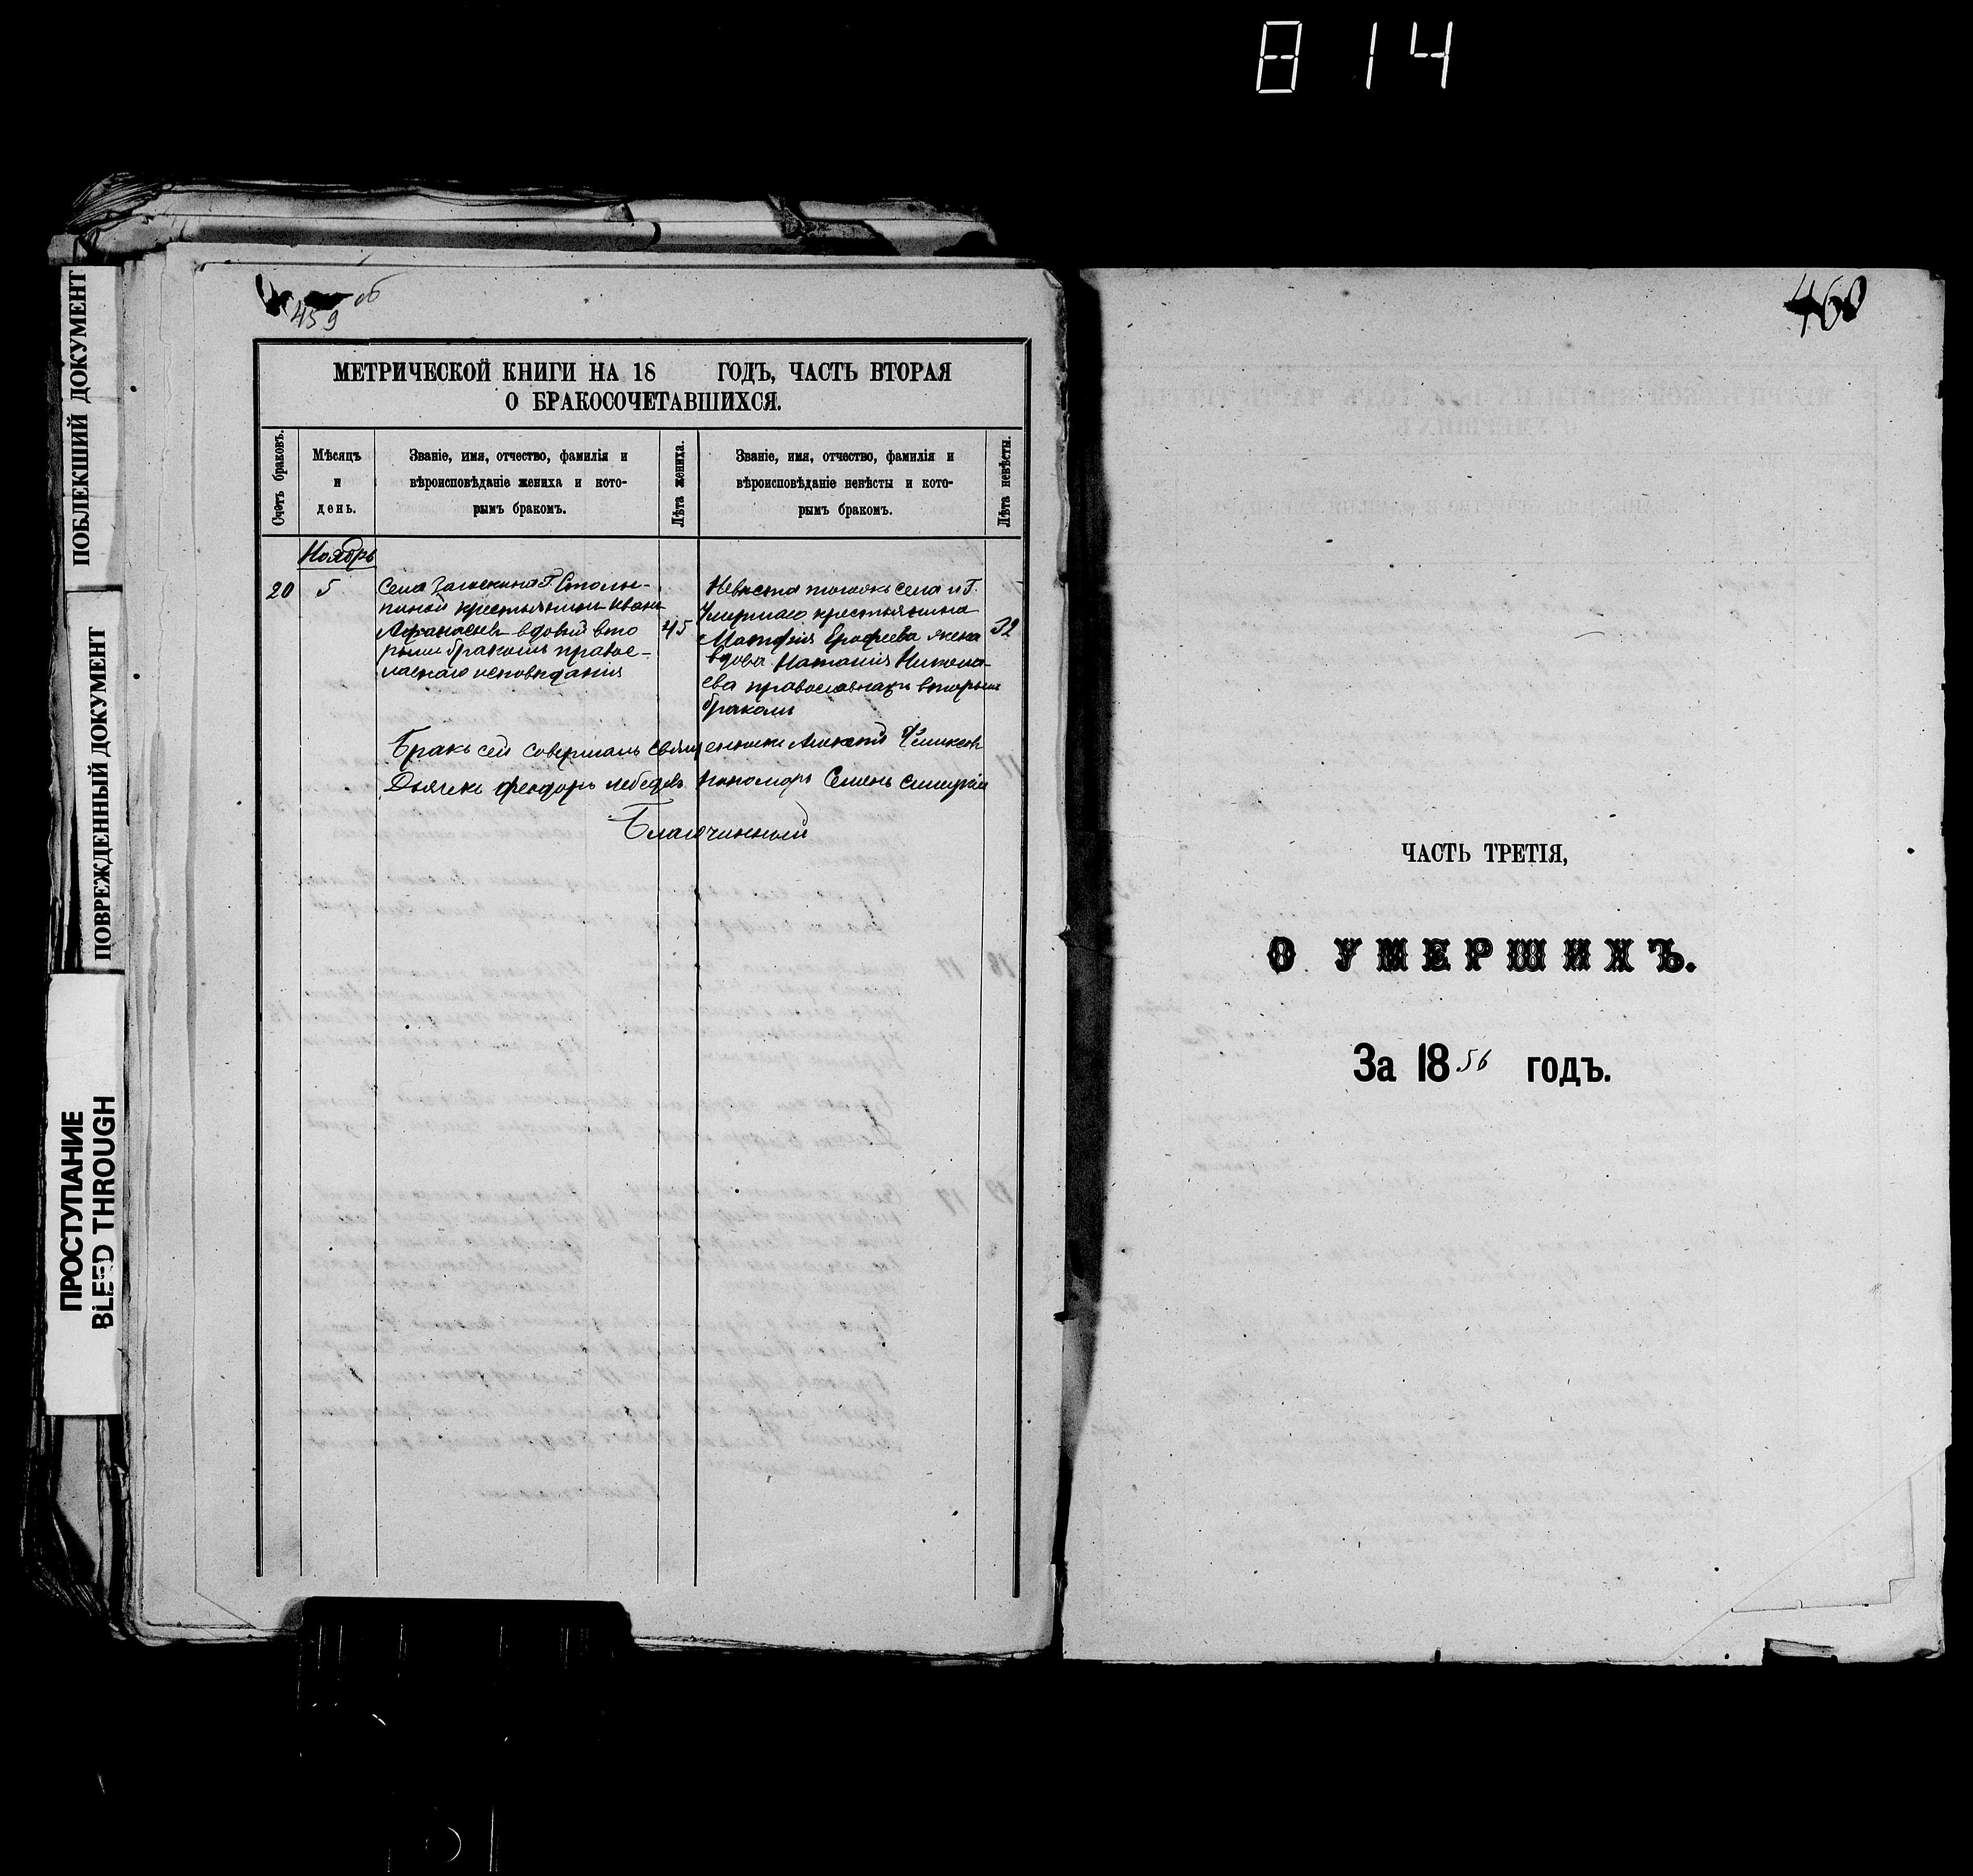 814
ПОБЛЕКШИЙ ДОКУМЕНТ
ПОВРЕЖДЕННЫЙ ДОКУМЕНТ
ПРОСТУПАНИЕ
BLEED THROUGH
459 об
МЕТРИЧЕСКОЙ КНИГИ НА 18 ГОДЪ, ЧАСТЬ ВТОРАЯ
О БРАКОСОЧЕТАВШИХСЯ.
Счетъ браковъ.
Мѣсяцъ
и
день.
Званіе, имя, отчество, фамилія и
вѣроисповѣданіе жениха и кото-
рымъ бракомъ.
Лѣта жениха.
Званіе, имя, отчество, фамилія и
вѣроисповѣданіе невѣсты и кото-
рымъ бракомъ.
Лѣта невѣсты.
Ноябрь
20
5
Села Г. Столы-
пиной крестьянинъ Иванъ
Афанасьевъ вдовый вто
рымъ бракомъ правос-
лавнаго исповѣданія
45
Невѣста тогожъ села и Г.
Умершаго крестьянина
Матфія Ерофеева жена
вдова Наталія Никола-
ева православная вторымъ
бракомъ
32
Бракъ сей совершалъ священникъ Алексѣй
Дьячекъ Феодоръ Лебедевъ Пономарь Семенъ
Благочинный
460
ЧАСТЬ ТРЕТІЯ,
О УМЕРШИХЪ.
За 1856 годъ.